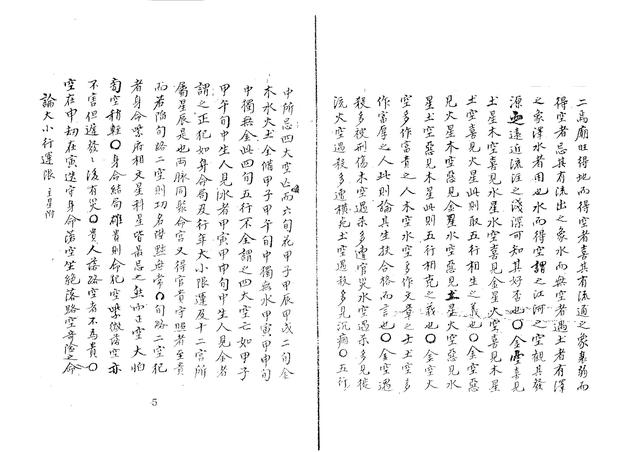 二高廟旺得地而得空者喜其有流通之象暴弱而
得空者忌其有流出之象水而無空者遇土者有澤
之象澤水者用也水而得空謂之江河之空觀其發
源遠近流注之淺深可知其好否也○金空喜見
土星木空喜見水星水空喜見金星火空喜見木星
土空喜見火星此則取五行相生之義也○金空惡
見火星木空惡見金星水空惡見土星火空惡見水
星土空惡見木星此則五行相克之義也○金空火
空多作富貴之人木空水空多作文章之士土空多
作富厚之人此則論其生扶合格而言也○金空遇
殺多被刑傷木空遇殺多遭官災水空遇殺多見徒
流火空遇殺多遭橫死土空遇殺多見沉痼○五行
中所忌四大空亡而六旬花甲子甲辰甲戌二旬金
木水火土全備甲子甲午旬中獨無水甲寅甲申旬
中獨無金此四旬五行不全謂之四大空亡如甲子
甲午旬中生人見水者甲寅甲申旬中生人見金者
謂之正犯如身命局及行年大小限運及十二宮所
屬星辰是也兩脈同聚命宮又得官貴守照者至貴
而若陷旬路二空則功名陞黜無常○旬路二空犯
者身命紫府相文星科星皆畏忌之無小正空大怕
旬空稍輕○身命結局雄貴則命犯空紫微落空亦
不害但遲發々後有災○貴人落路空者不為貴○
空在申劫在寅遙守身命落空坐絕落路空奇險之命
論大小行運限 主星附
5